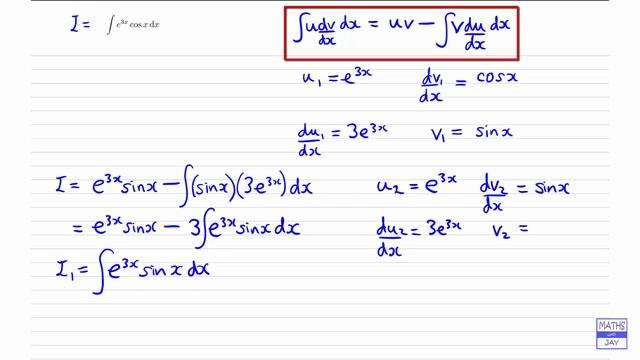 I = ∫ e^{3x} cos x dx
∫u dv/dx dx = uv − ∫v du/dx dx
u₁ = e^{3x} dv₁/dx = cosx
du₁/dx = 3e^{3x} v₁ = sinx
I = e^{3x} sinx − ∫(sinx)(3e^{3x}) dx
= e^{3x} sinx − 3∫e^{3x} sinx dx
I₁ = ∫e^{3x} sin x dx
u₂ = e^{3x} dv₂/dx = sinx
du₂/dx = 3e^{3x} v₂ =
MATHS
WITH
JAY